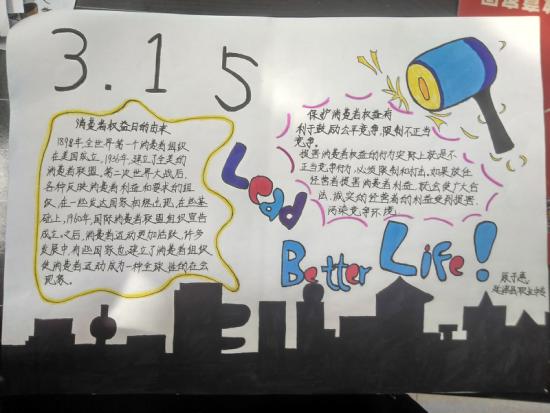 3.15
消费者权益日的由来
1898年,全世界第一个消费者组织
在美国成立,1936年,建立了全美的
消费者联盟。第二次世界大战后,
各种反映消费者利益和要求的组
织,在一些发达国家相继出现。在此基
础上,1960年,国际消费者联盟组织宣告
成立。之后,消费者运动更加活跃,许多
发展中,有些国家也建立了消费者组织
使消费者运动成为一种全球性的社会
现象。
保护消费者权益有
利于鼓励公平竞争,限制不正当
竞争。
损害消费者权益的行为实际上就是不
正当竞争行为,必须限制和打击。如果放任
经营者损害消费者利益,就会使广大合
法、诚实的经营者的利益受到损害,
污染竞争环境
Lead
Better Life!